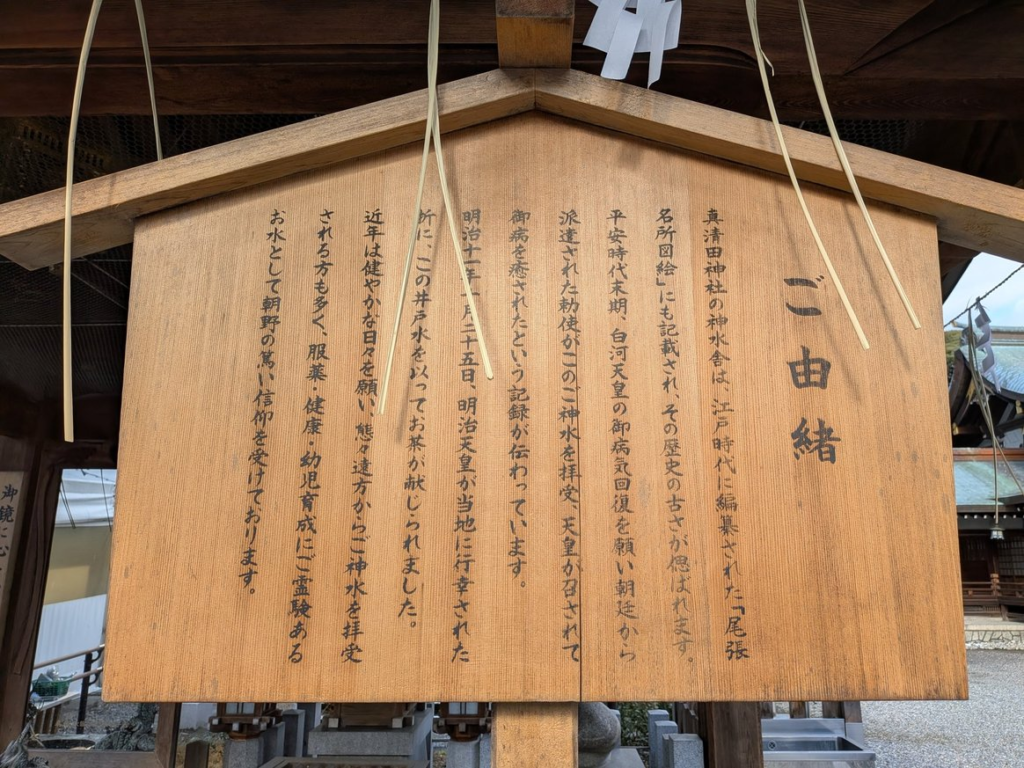 ご由緒
真清田神社の神水舎は、江戸時代に編纂された「尾張
名所図絵」にも記載され、その歴史の古さが偲ばれます。
平安時代末期、白河天皇の御病気回復を願い朝廷から
派遣された勅使がこのご神水を拝受、天皇が召されて
御病を癒されたという記録が伝わっています。
明治十一年 月二十五日、明治天皇が当地に行幸された
所に、この井戸水を以ってお茶が献じられました。
近年は健やかな日々を願い、態々遠方からご神水を拝受
される方も多く、服薬・健康・幼児育成にご霊験ある
お水として朝野の篤い信仰を受けております。
御鏡に